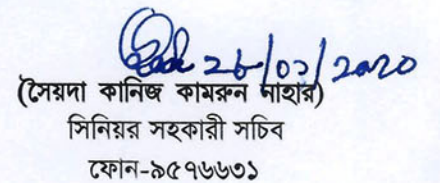 ২৮/০১/২০২০
(সৈয়দা কানিজ কামরুন নাহার)
সিনিয়র সহকারী সচিব
ফোন-৯৫৭৬৬৩১